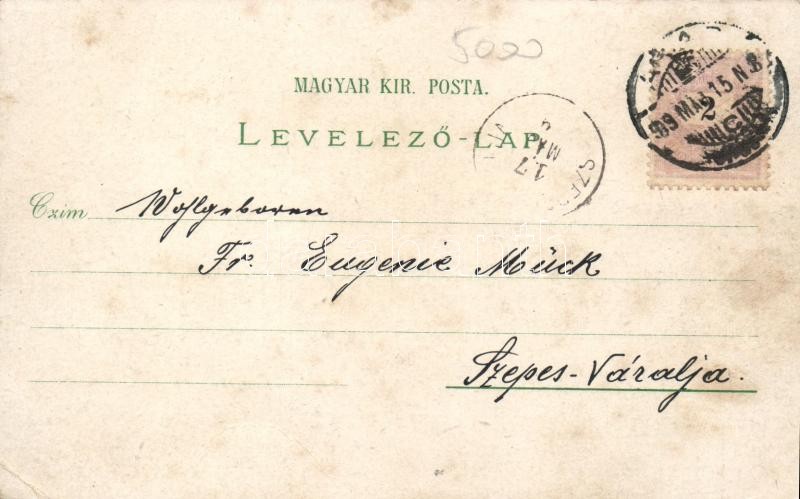 5000
MAGYAR KIR. POSTA.
LEVELEZŐ-LAP.
Czim Wohlgeboren
Fr. Eugenie Mück
Szepes-Váralja.
99 MÁJ 15 N.8
2
MÁJ
17